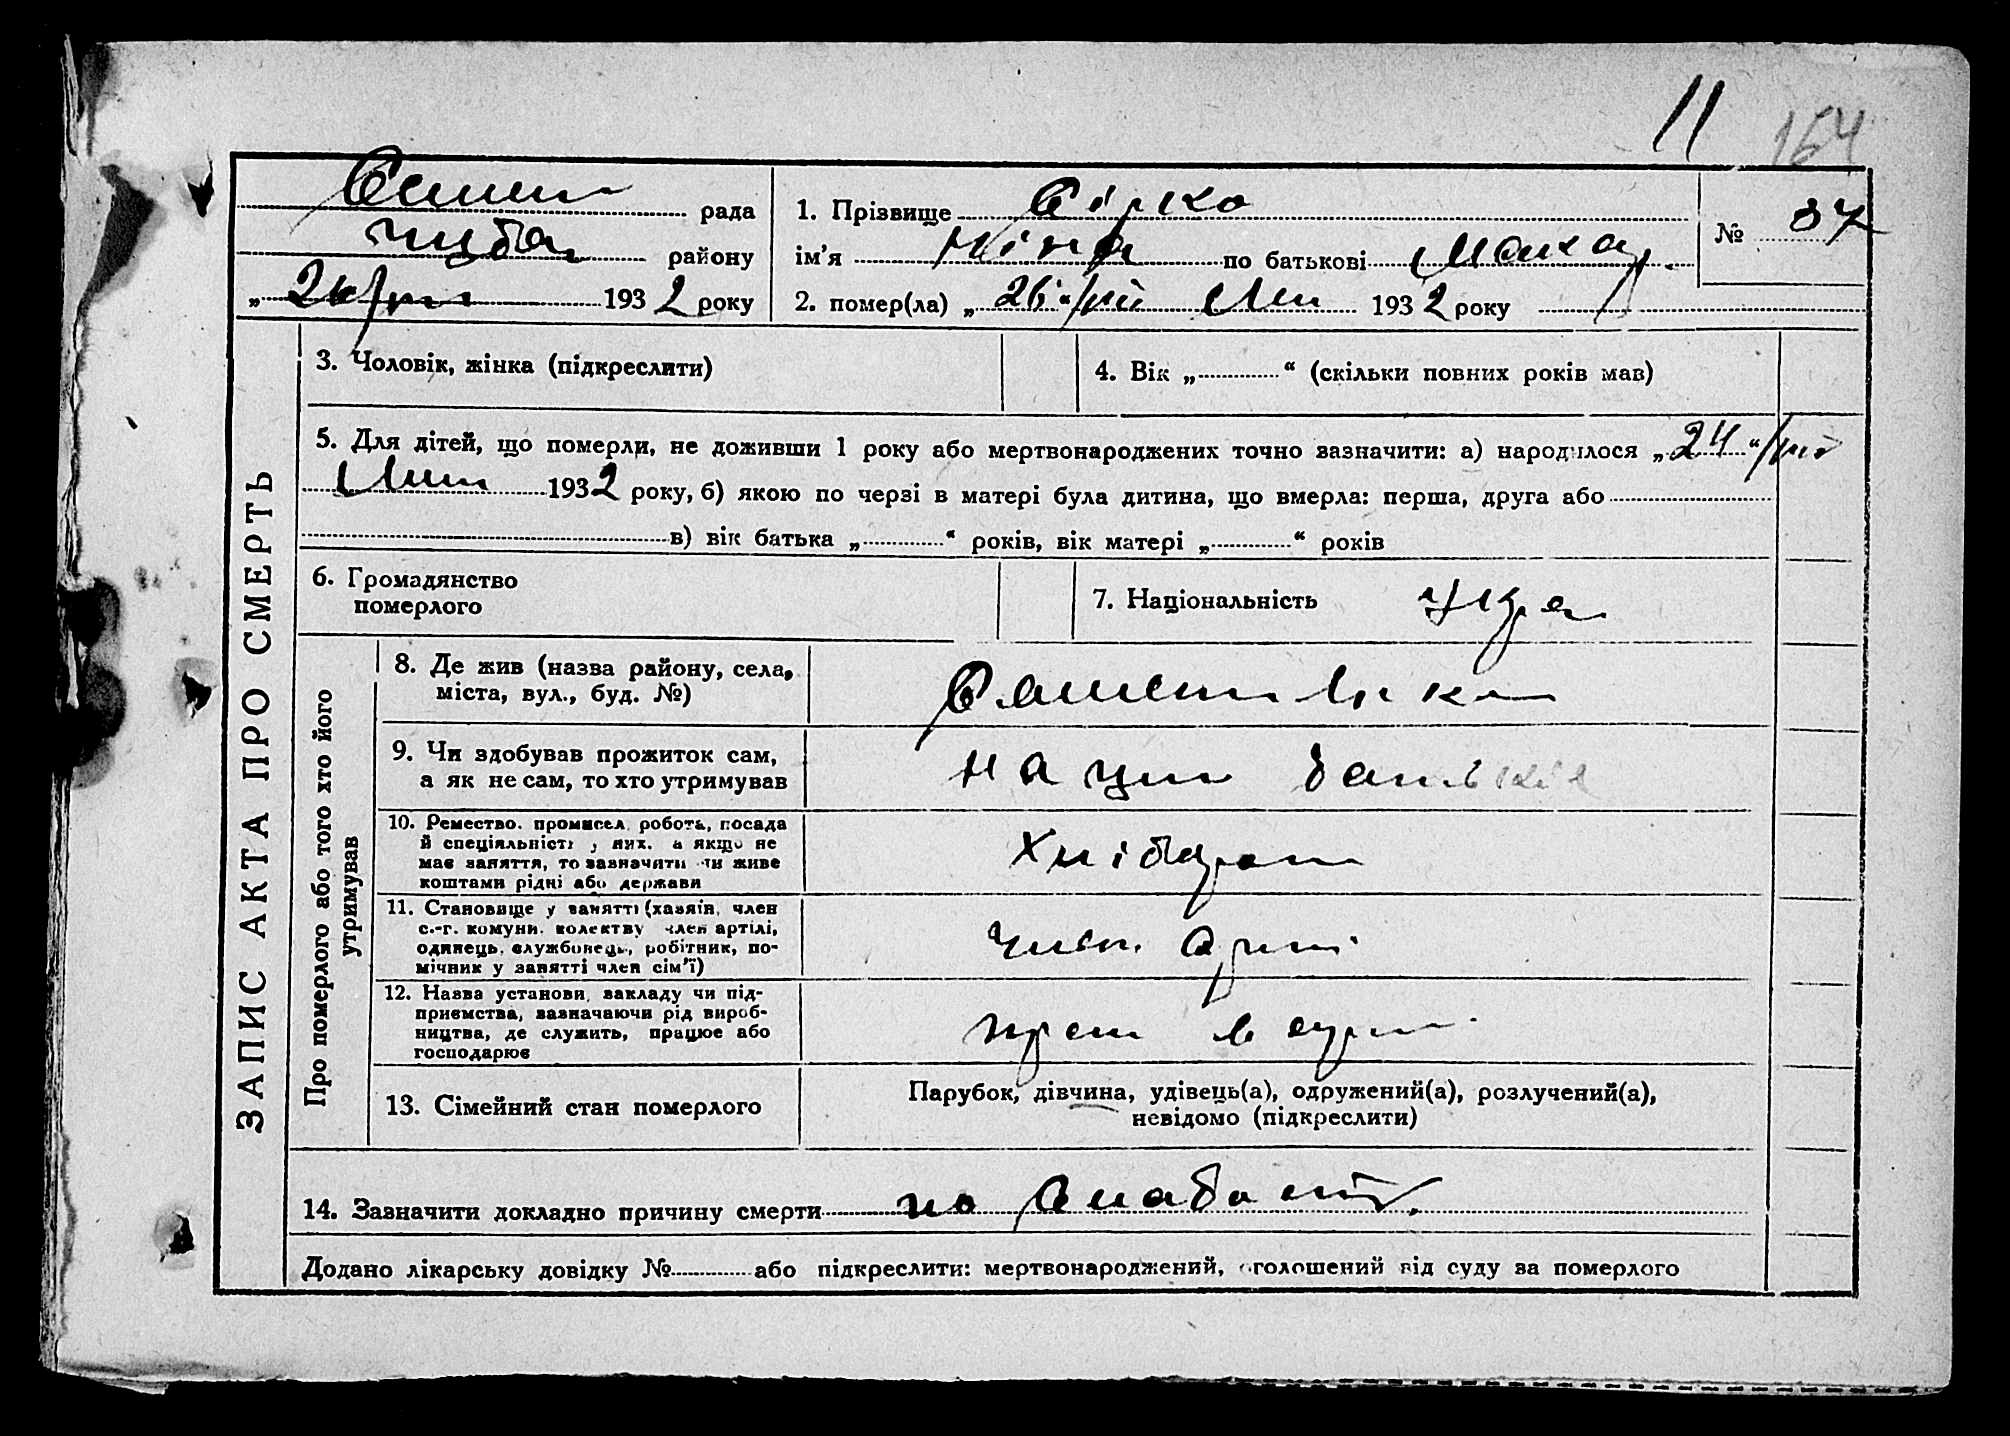 11 154
рада
району
193 2 року
1. Прізвище Сірко
ім'я Ніна по батькові
№ 37
2. помер(ла) „ 26 " 193 2 року
ЗАПИС АКТА ПРО СМЕРТЬ
3. Чоловік, жінка (підкреслити)
4. Вік „ “ (скільки повних років мав)
5. Для дітей, що померли, не доживши 1 року або мертвонароджених точно зазначити: а) народилося „ 24 “
193 2 року, б) якою по черзі в матері була дитина, що вмерла: перша, друга або
в) вік батька „ “ років, вік матері „ “ років
6. Громадянство
померлого
7. Національність Укра
Про померлого або того хто його
утримував
8. Де жив (назва району, села,
міста, вул., буд. №)
9. Чи здобував прожиток сам,
а як не сам, то хто утримував
на
10. Ремество, промисел, робота, посада
й спеціяльність у них, а якщо не
має заняття, то зазначити чи живе
коштами рідні або держави
Хлібороб
11. Становище у занятті (хазяїн, член
с.-г. комуни, колективу член артілі,
одинець, службовець, робітник, по-
мічник у занятті член сім'ї)
член арт
12. Назва установи, закладу чи під-
приємства, зазначаючи рід вироб-
ництва, де служить, працює або
господарює
13. Сімейний стан померлого
Парубок, дівчина, удівець(а), одружений(а), розлучений(а),
невідомо (підкреслити)
14. Зазначити докладно причину смерти по слабости
Додано лікарську довідку № або підкреслити: мертвонароджений, оголошений від суду за померлого